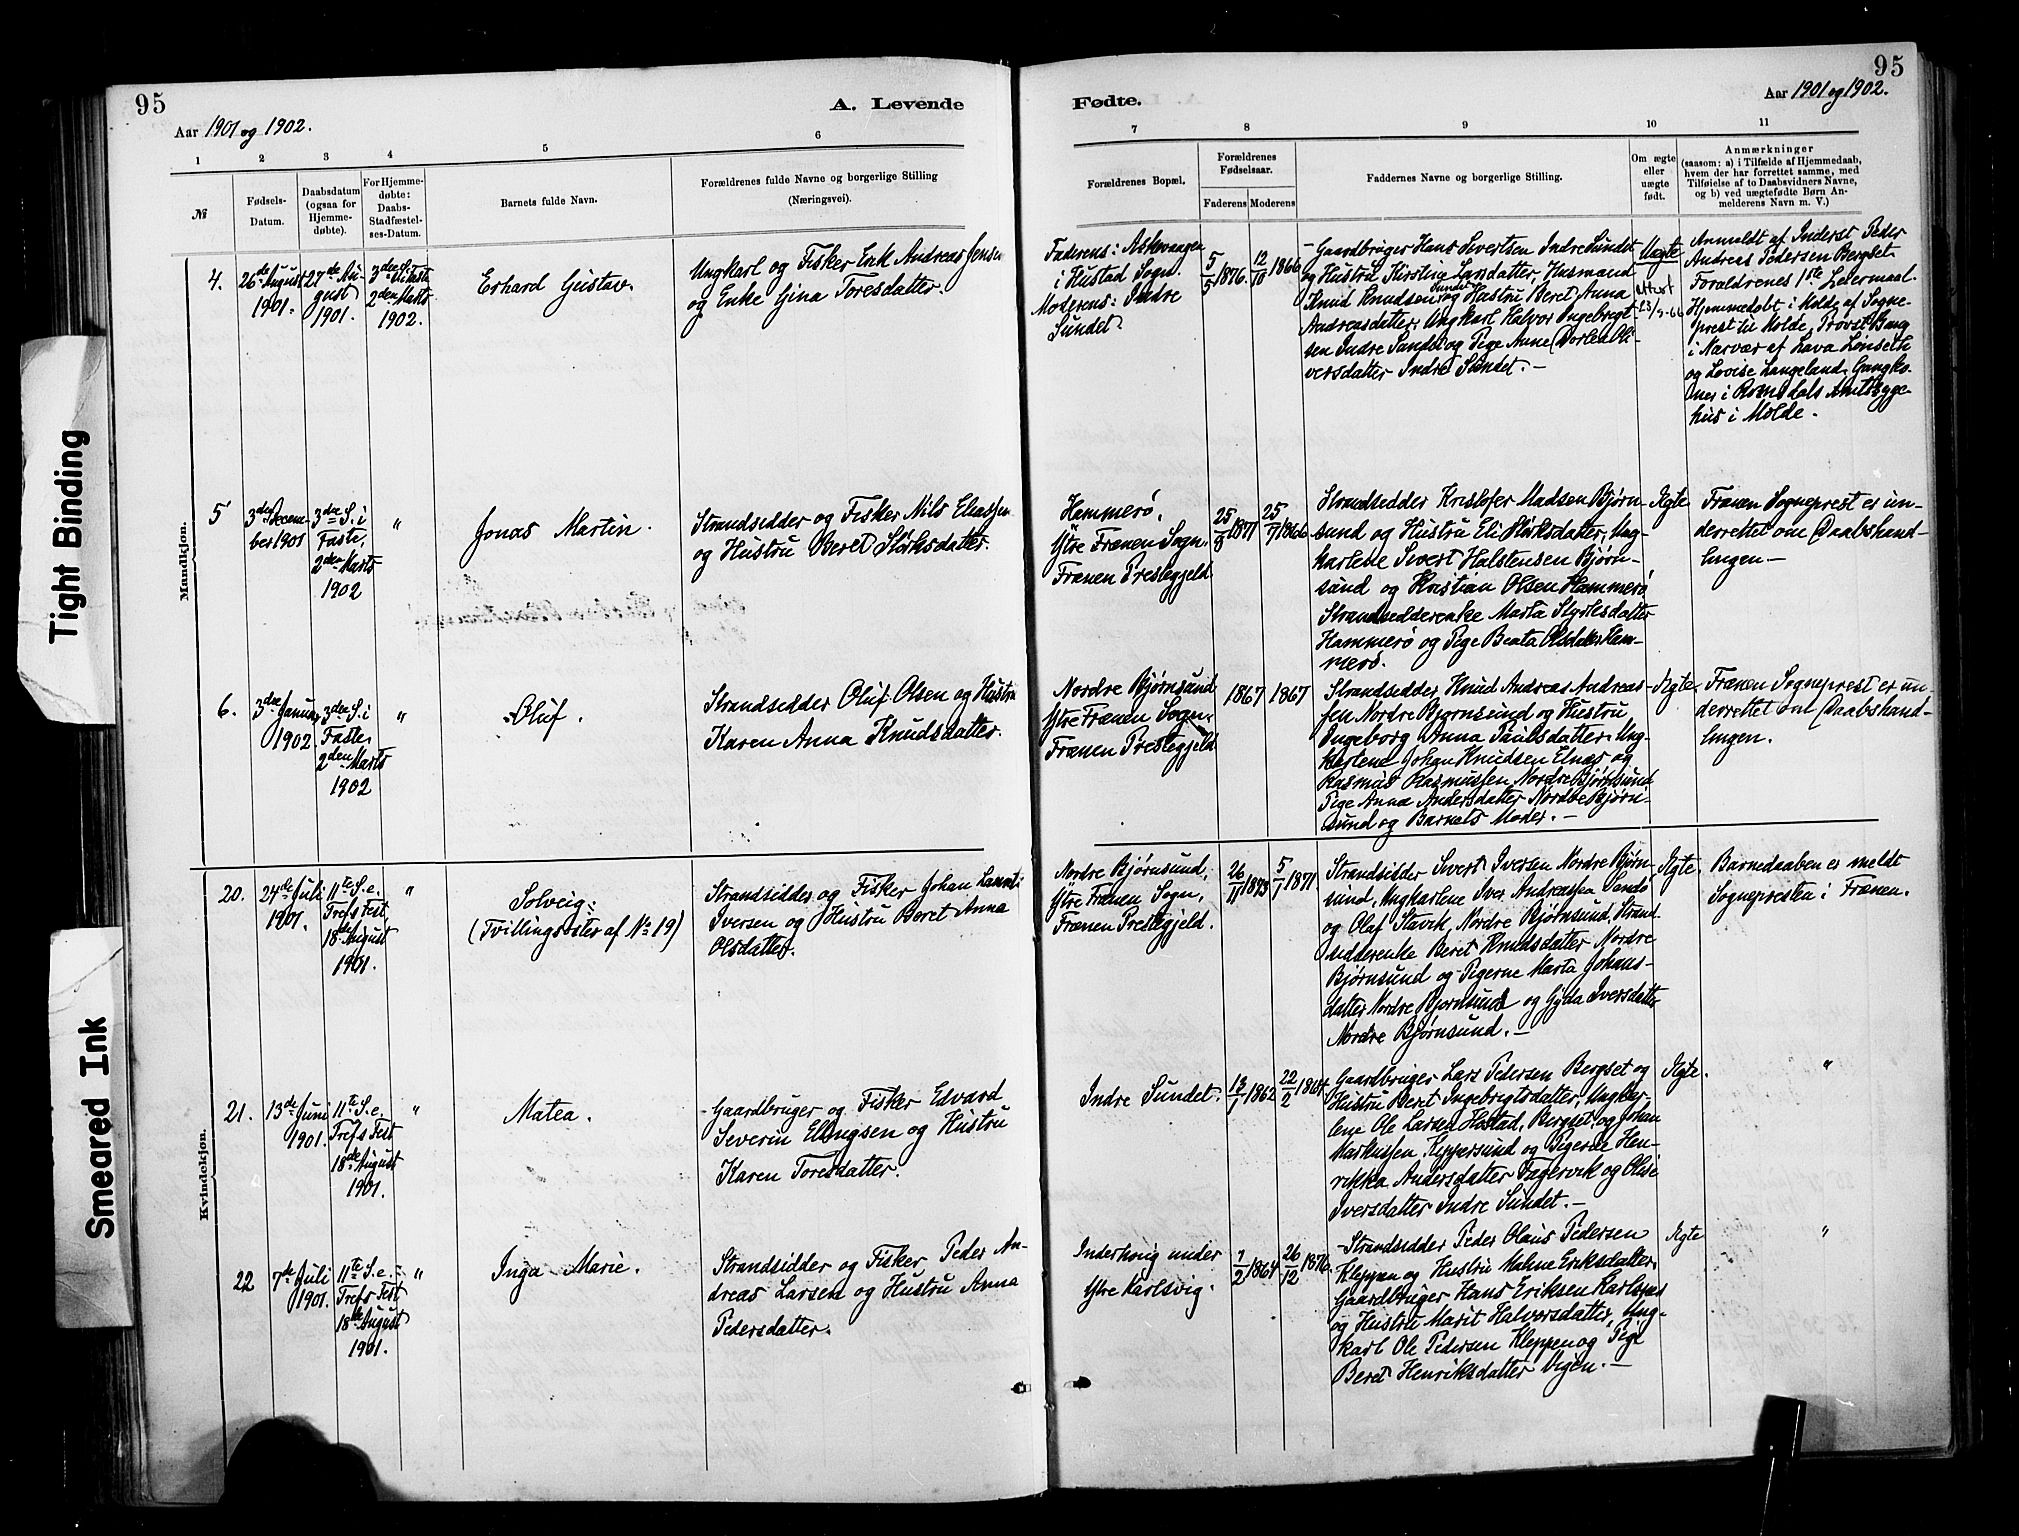 95
A. Levende
Aar 1901 og 1902.
1
2
3
4
5
6
№
Fødsels-
Datum.
Daabsdatum
(ogsaa for
Hjemme-
døbte).
For Hjemme-
døbte:
Daabs-
Stadfæstel-
ses-Datum.
Barnets fulde Navn.
Forældrenes fulde Navne og borgerlige Stilling
(Næringsvei).
Mandkjøn.
4.
26de August
1901.
27de Au-
gust
1901.
3die S. i Faste
2den Marts
1902.
Erhard Gustav.
Ungkarl og Fisker Enk Andreas Jensen
og Enke Gina Toresdatter
5
3die Decem-
ber 1901
3die S. i
Faste,
2den Marts
1902
"
Jonas Martin.
Strandsidder og Fisker Nils Eliassen
og Hustru Beret Størksdatter.
6.
3die Januar
1902.
3die S. i
Faste,
2den Marts
1902
"
Oluf.
Strandsidder Oluf Olsen og Hustru
Karen Anna Knudsdatter.
Kvindekjøn.
20.
24de Juli
1901.
11te S. e.
Trefs Fest
18de August
1901.
"
Solveig.
(Tvillingsøster af № 19)
Strandsidder og Fisker Johan Laurits
Iversen og Hustru Beret Anna
Olsdatter.
21.
13de Juni
1901.
11te S. e.
Trefs Fest
18de August
1901.
"
Matea.
Gaardbruger og Fisker Edvard
Severin Ellingsen og Hustru
Karen Toresdatter.
22
7de Juli
1901.
11te S. e.
Trefs Fest
18de August
1901.
"
Inga Marie.
Strandsidder og Fisker Peder An-
dreas Larsen og Hustru Anna
Pedersdatter.
95
Fødte.
Aar 1901 og 1902.
7
8
9
10
11
Forældrenes Bopæl.
Forældrenes
Fødselsaar.
Faderens
Moderens
Faddernes Navne og borgerlige Stilling.
Om ægte
eller
uægte
født.
Anmærkninger
(saasom: a) i Tilfælde af Hjemmedaab,
hvem der har forrettet samme, med
Tilføielse af to Daabsvidners Navne,
og b) ved uægtefødte Børn An-
melderens Navn m. V.)
Faderens: Askvaagen
i Hustad Sogn.
Moderens: Indre
Sundet.
5/5 1876
12/10 1866
Gaardbruger Hans Sivertsen Indre Sundet
og Hustru Kirstine Larsdatter, Husmand
Knud Knudsen Sundet og Hustru Beret Anna
Andreasdatter, Ungkarl Halvor Ingebrigt-
sen Indre Sundet og Pige Anne Dorlea Oli-
versdatter Indre Sundet.—
Uægte
Anmeldt af Inderst Peder
Andreas Pedersen Bergset.
Forældrenes 1ste Leiermaal.
Hjemmedøbt i Molde af Sogne-
prest til Molde, Provst Bang
i Nærvær af Lava Lønseth
og Lovise Langeland, Gangko-
ner i Romsdals Amtssyge-
hus i Molde.
Hammerø,
Ytre Frænen Sogn,
Frænen Prestegjeld
25/8 1871
25/7 1866
Strandsidder Kristofer Madsen Bjørn-
sund og Hustru Eli Størksdatter, Ung-
karlene Sivert Halstensen Bjørn-
sund og Kristian Olsen Hammerø,
Strandsidderenke Marta Styrksdatter
Hammerø og Pige Beata Olsdatter Ham-
merø.
Ægte
Frænen Sogneprest er un-
derrettet om Daabshand-
lingen—
Nordre Bjørnsund
Ytre Frænen Sogn,
Frænen Prestegjeld
1867
1867
Strandsidder Knud Andreas Andreas-
sen Nordre Bjørnsund og Hustru
Ingeborg Anna Paulsdatter, Ung-
karlene Johan Knudsen Elnæs og
Rasmus Rasmussen Nordre Bjørnsund
Pige Anna Andersdatter Nordre Bjørn-
sund og Barnets Moder.—
Ægte.
Frænen Sogneprest er un-
derrettet om Daabshand-
lingen.
Nordre Bjørnsund,
Ytre Frænen Sogn,
Frænen Prestegjeld.
26/11 1873
5/1 1871.
Strandsidder Sivert Iversen Nordre Bjørn-
sund, Ungkarlene Iver Andreassen Sandø
og Olaf Stavik, Nordre Bjørnsund, Strand-
sidderenke Beret Knudsdatter Nordre
Bjørnsund og Pigerne Marta Johans-
datter Nordre Bjørnsund og Gyda Iversdatter
Nordre Bjørnsund.—
Ægte.
Barnedaaben er meldt
Sognepresten i Frænen.
Indre Sundet.
13/1 1862
22/2 1864.
Gaardbruger Lars Pedersen Bergset og
Hustru Beret Ingebrigtsdatter, Ungkar-
lene Ole Larsen Hostad, Bergset og Johan
Markussen Reppersund og Pigerne Hen-
rikka Andersdatter Fagervik og Olise
Iversdatter Indre Sundet.—
Ægte.
"
Inderhoug under
Ytre Karlsvig.
7/2 1864
26/12 1876.
Strandsidder Peder Olaus Pedersen
Kleppen og Hustru Malene Eriksdatter,
Gaardbruger Hans Eriksen Karlsnæs
og Hustru Marit Halvorsdatter, Ung-
karl Ole Pedersen Kleppen og Pige
Beret Henriksdatter Vigen.—
Ægte
"
Tight Binding
Smeared Ink